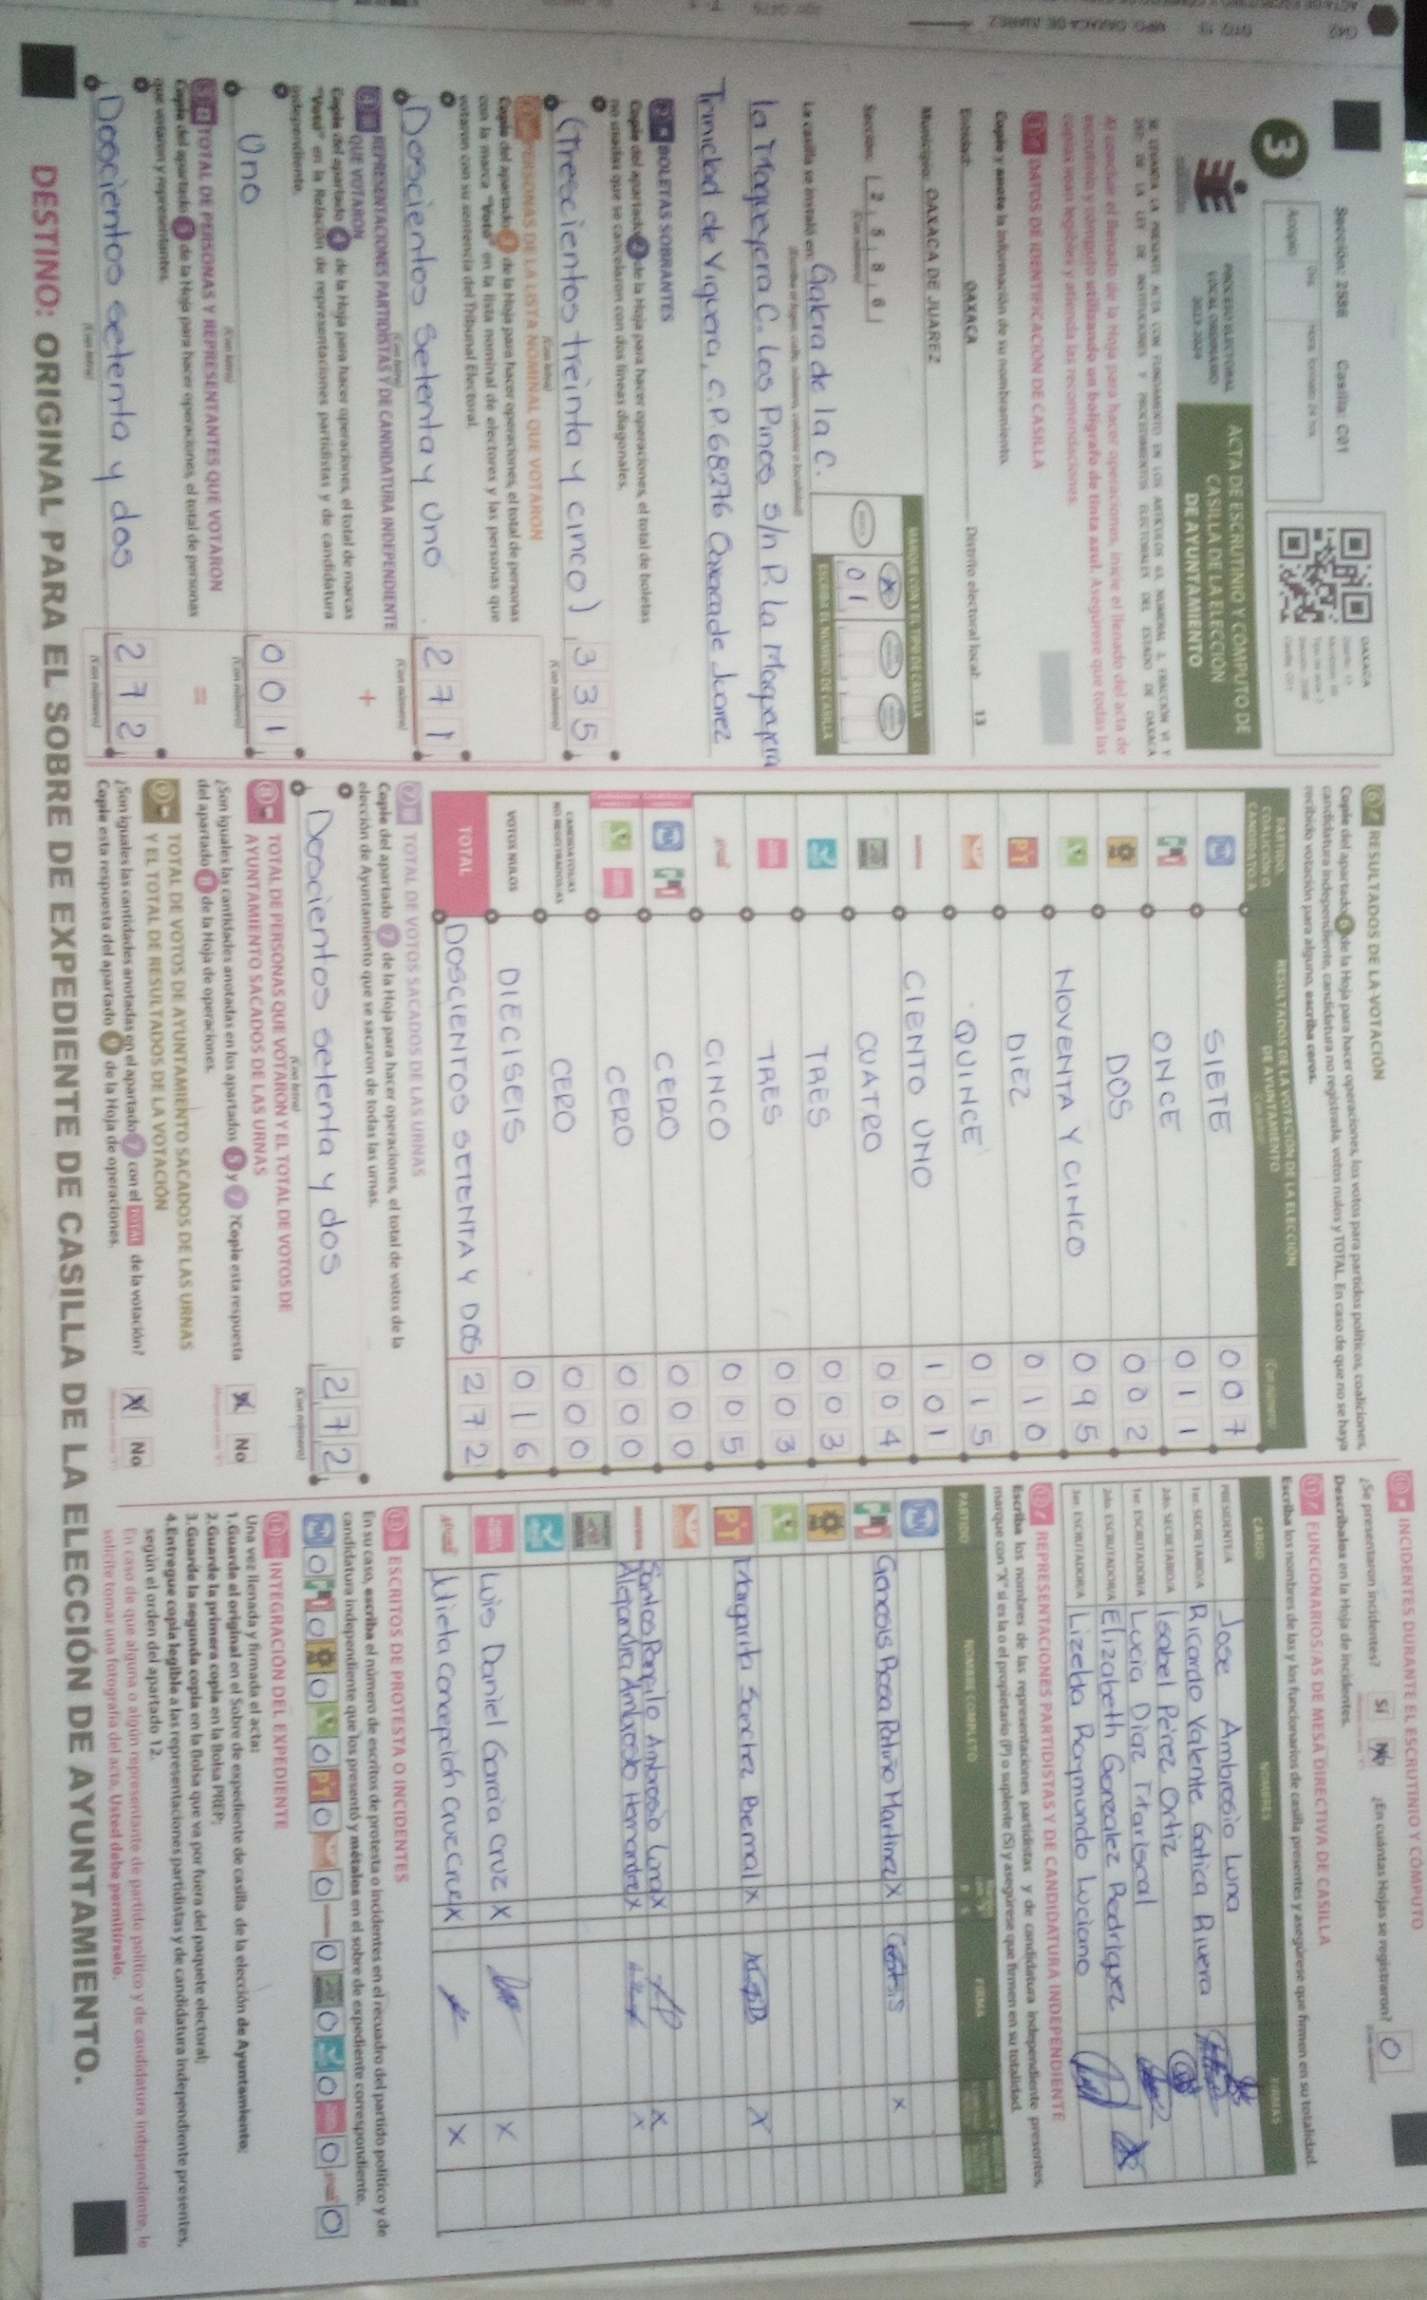 Sección: 2586 Casilla: C01
OAXACA
3
PROCESO ELECTORAL
LOCAL ORDINARIO
2023-2024
ACTA DE ESCRUTINIO Y CÓMPUTO DE
CASILLA DE LA ELECCIÓN
DE AYUNTAMIENTO
Al concluir el llenado de la Hoja para hacer operaciones, inicie el llenado del acta de
escrutinio y cómputo utilizando un bolígrafo de tinta azul. Asegúrese que todas las
copias sean legibles y atienda las recomendaciones.
1 DATOS DE IDENTIFICACIÓN DE CASILLA
Copie y anote la información de su nombramiento.
Entidad: OAXACA Distrito electoral local: 13
Municipio: OAXACA DE JUÁREZ
Sección: 2586
MARQUE CON X EL TIPO DE CASILLA
ESCRIBA EL NÚMERO DE CASILLA
01
La casilla se instaló en: Galera de la C.
la Maqueyera C. Los Pinos S/n P. la Maqueyera
Trinidad de Viguera, C.P. 68276 Oaxaca de Juarez
2 BOLETAS SOBRANTES
Copie del apartado 2 de la Hoja para hacer operaciones, el total de boletas
no usadas que se cancelaron con dos líneas diagonales.
(trescientos treinta y cinco) 335
3 PERSONAS DE LA LISTA NOMINAL QUE VOTARON
Copie del apartado 3 de la Hoja para hacer operaciones, el total de personas
con la marca "Votó" en la lista nominal de electores y las personas que
votaron con su sentencia del Tribunal Electoral.
Doscientos Setenta y Uno 271
4 REPRESENTACIONES PARTIDISTAS Y DE CANDIDATURA INDEPENDIENTE
QUE VOTARON
Copie del apartado 4 de la Hoja para hacer operaciones, el total de marcas
"Votó" en la Relación de representaciones partidistas y de candidatura
independiente.
+
Uno 001
5 TOTAL DE PERSONAS Y REPRESENTANTES QUE VOTARON
Copie del apartado 5 de la Hoja para hacer operaciones, el total de personas
que votaron y representantes.
=
Doscientos setenta y dos 272
6 RESULTADOS DE LA VOTACIÓN
Copie del apartado 6 de la Hoja para hacer operaciones, los votos para partidos políticos, coaliciones,
candidatura independiente, candidatura no registrada, votos nulos y TOTAL. En caso de que no se haya
recibido votación para alguno, escriba ceros.
PARTIDO, COALICIÓN O CANDIDATO/A
RESULTADOS DE LA VOTACIÓN DE LA ELECCIÓN
DE AYUNTAMIENTO
SIETE 007
ONCE 011
DOS 002
NOVENTA Y CINCO 095
PT DIEZ 010
QUINCE 015
CIENTO UNO 101
CUATRO 004
TRES 003
TRES 003
CINCO 005
CERO 000
CERO 000
CANDIDATOS/AS NO REGISTRADOS/AS CERO 000
VOTOS NULOS DIECISEIS 016
TOTAL DOSCIENTOS SETENTA Y DOS 272
7 TOTAL DE VOTOS SACADOS DE LAS URNAS
Copie del apartado 7 de la Hoja para hacer operaciones, el total de votos de la
elección de Ayuntamiento que se sacaron de todas las urnas.
Doscientos setenta y dos 272
8 TOTAL DE PERSONAS QUE VOTARON Y EL TOTAL DE VOTOS DE
AYUNTAMIENTO SACADOS DE LAS URNAS
¿Son iguales las cantidades anotadas en los apartados 5 y 7? Copie esta respuesta
del apartado 8 de la Hoja de operaciones. X No
9 TOTAL DE VOTOS DE AYUNTAMIENTO SACADOS DE LAS URNAS
Y EL TOTAL DE RESULTADOS DE LA VOTACIÓN
¿Son iguales las cantidades anotadas en el apartado 7 con el TOTAL de la votación?
Copie esta respuesta del apartado 9 de la Hoja de operaciones. X No
10 INCIDENTES DURANTE EL ESCRUTINIO Y CÓMPUTO
¿Se presentaron incidentes? Sí No ¿En cuántas Hojas se registraron? 0
Descríbalos en la Hoja de incidentes.
11 FUNCIONARIOS/AS DE MESA DIRECTIVA DE CASILLA
Escriba los nombres de las y los funcionarios de casilla presentes y asegúrese que firmen en su totalidad.
CARGO NOMBRES FIRMAS
PRESIDENTE/A Jose Ambrosio Luna
1er. SECRETARIO/A Ricardo Valente Gatica Rivera
2do. SECRETARIO/A Isabel Pérez Ortiz
1er. ESCRUTADOR/A Lucia Diaz Mariscal
2do. ESCRUTADOR/A Elizabeth Gonzalez Rodriguez
3er. ESCRUTADOR/A Lizelda Raymundo Luciano
12 REPRESENTACIONES PARTIDISTAS Y DE CANDIDATURA INDEPENDIENTE
Escriba los nombres de las representaciones partidistas y de candidatura independiente presentes,
marque con "X" si es la o el propietario (P) o suplente (S) y asegúrese que firmen en su totalidad.
PARTIDO NOMBRE COMPLETO FIRMA
Genesis Rosa Patiño Martinez X X
PT Margarita Sanchez Bernal X X
Santos Pompilo Ambrosio Luna X X
Alejandra Ambrosio Hernandez X X
Luis Daniel Garcia Cruz X X
Miela Concepción Cruz Cruz X X
13 ESCRITOS DE PROTESTA O INCIDENTES
En su caso, escriba el número de escritos de protesta o incidentes en el recuadro del partido político y de
candidatura independiente que los presentó y métalos en el sobre de expediente correspondiente.
0 0 0 0 PT 0 0 0 0 0 0 0
14 INTEGRACIÓN DEL EXPEDIENTE
Una vez llenada y firmada el acta:
1. Guarde el original en el Sobre de expediente de casilla de la elección de Ayuntamiento;
2. Guarde la primera copia en la Bolsa PREP;
3. Guarde la segunda copia en la Bolsa que va por fuera del paquete electoral;
4. Entregue copia legible a las representaciones partidistas y de candidatura independiente presentes,
según el orden del apartado 12.
En caso de que alguna o algún representante de partido político y de candidatura independiente, le
solicite tomar una fotografía del acta, Usted debe permitírselo.
DESTINO: ORIGINAL PARA EL SOBRE DE EXPEDIENTE DE CASILLA DE LA ELECCIÓN DE AYUNTAMIENTO.